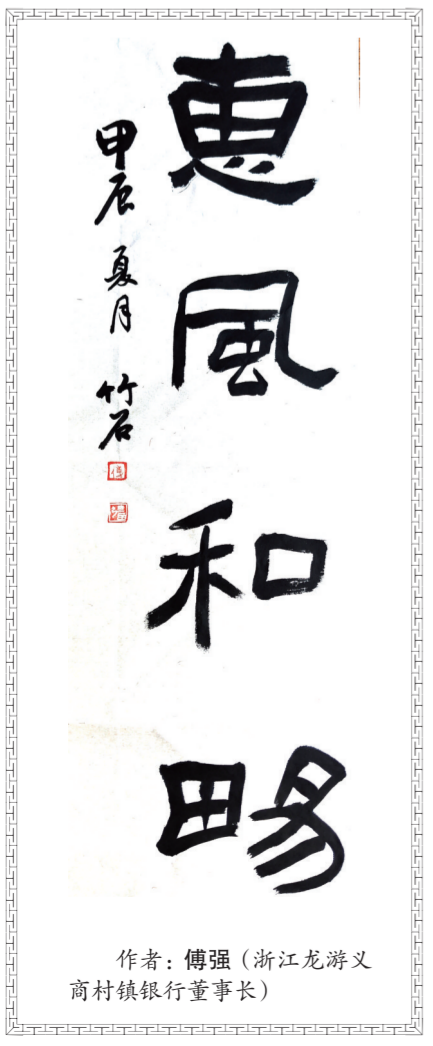 惠風和暢
甲辰 夏月 竹石
作者：傅强（浙江龙游义
商村镇银行董事长）